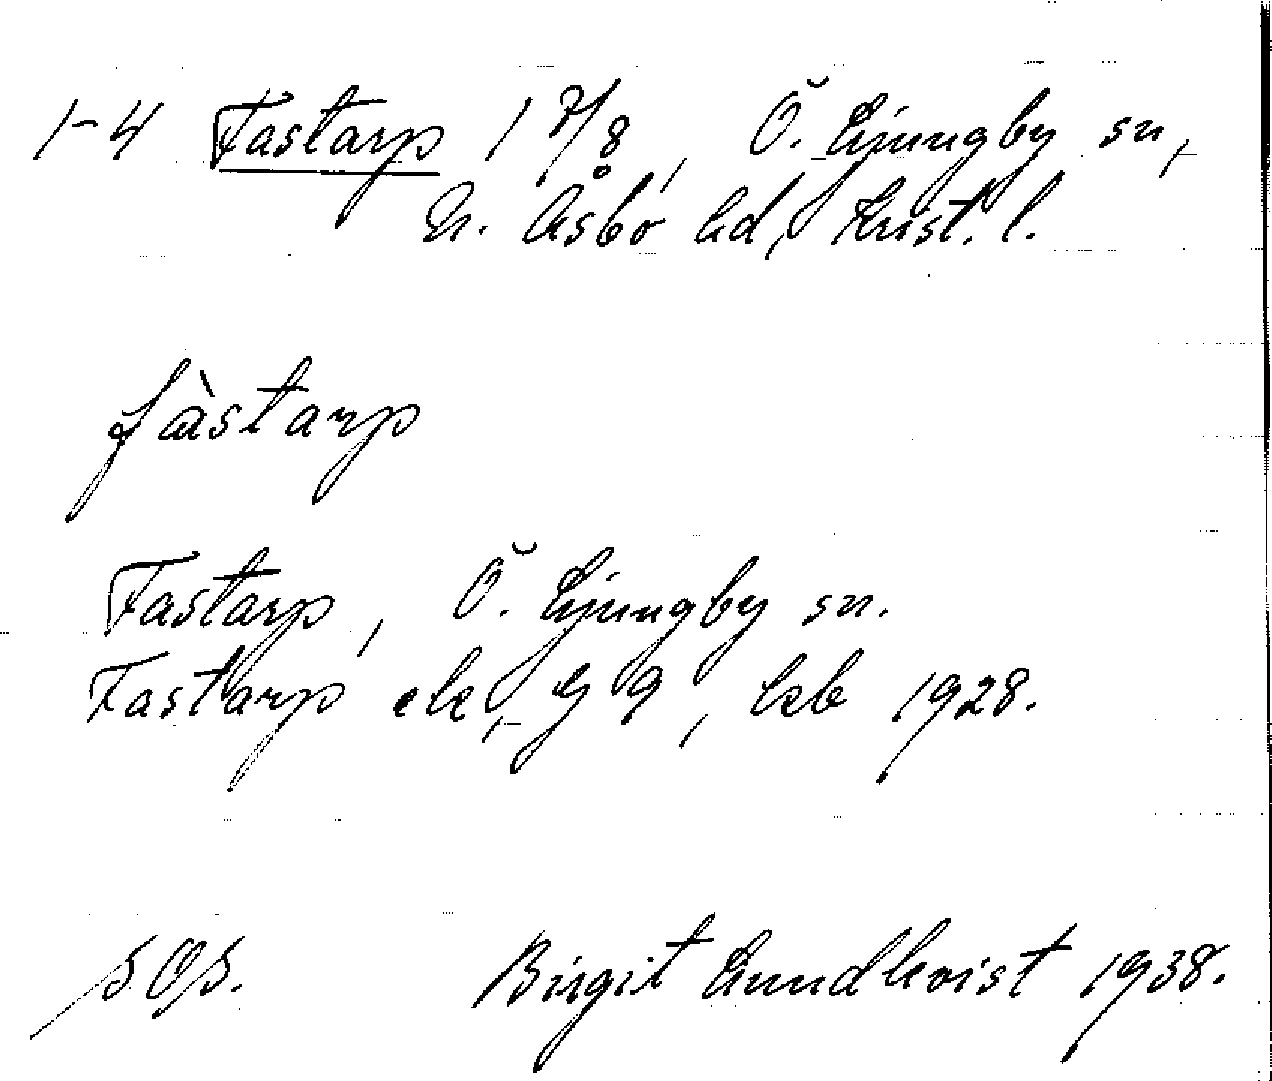 1-4 Fastarp 1 7/8, Ö. Ljungby sn,
N. Åsbo hd, Krist. l.
fàstarp
Fastarp, Ö. Ljungby sn.
Fastarp ek, G 9, kb 1928.
SOS. Birgit Lundkvist 1938.